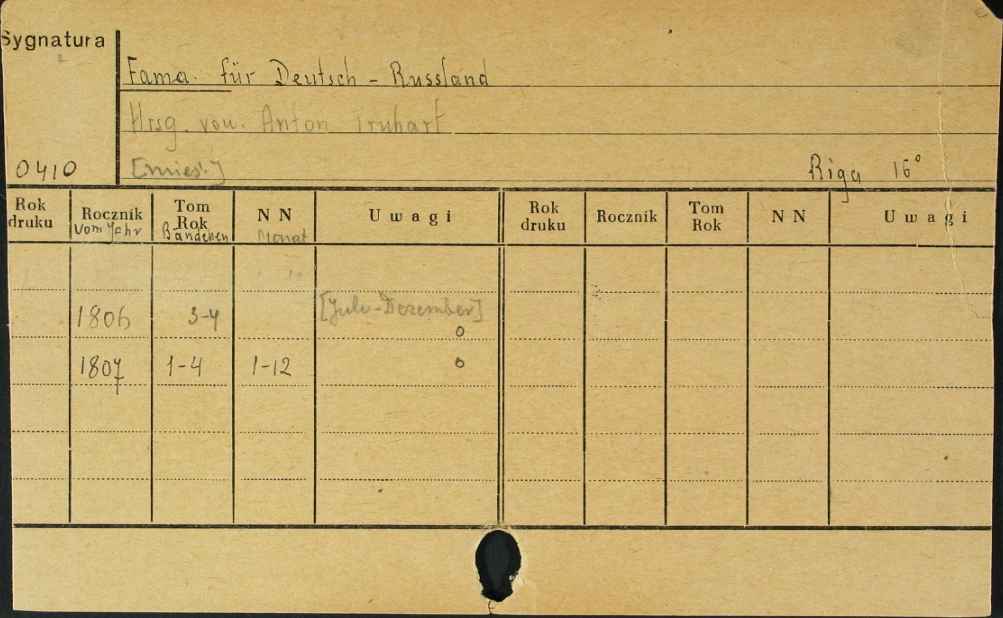 Sygnatura
Fama für Deutsch - Russland
Hrsg. von. Anton Truhart
0410 [mies.] Riga 16°
Rok druku Rocznik vom Jahr Tom Rok Bändchen N N Monat Uwagi Rok druku Rocznik Tom Rok N N Uwagi
1806 3-4 [Juli-Dezember] o
1807 1-4 1-12 o